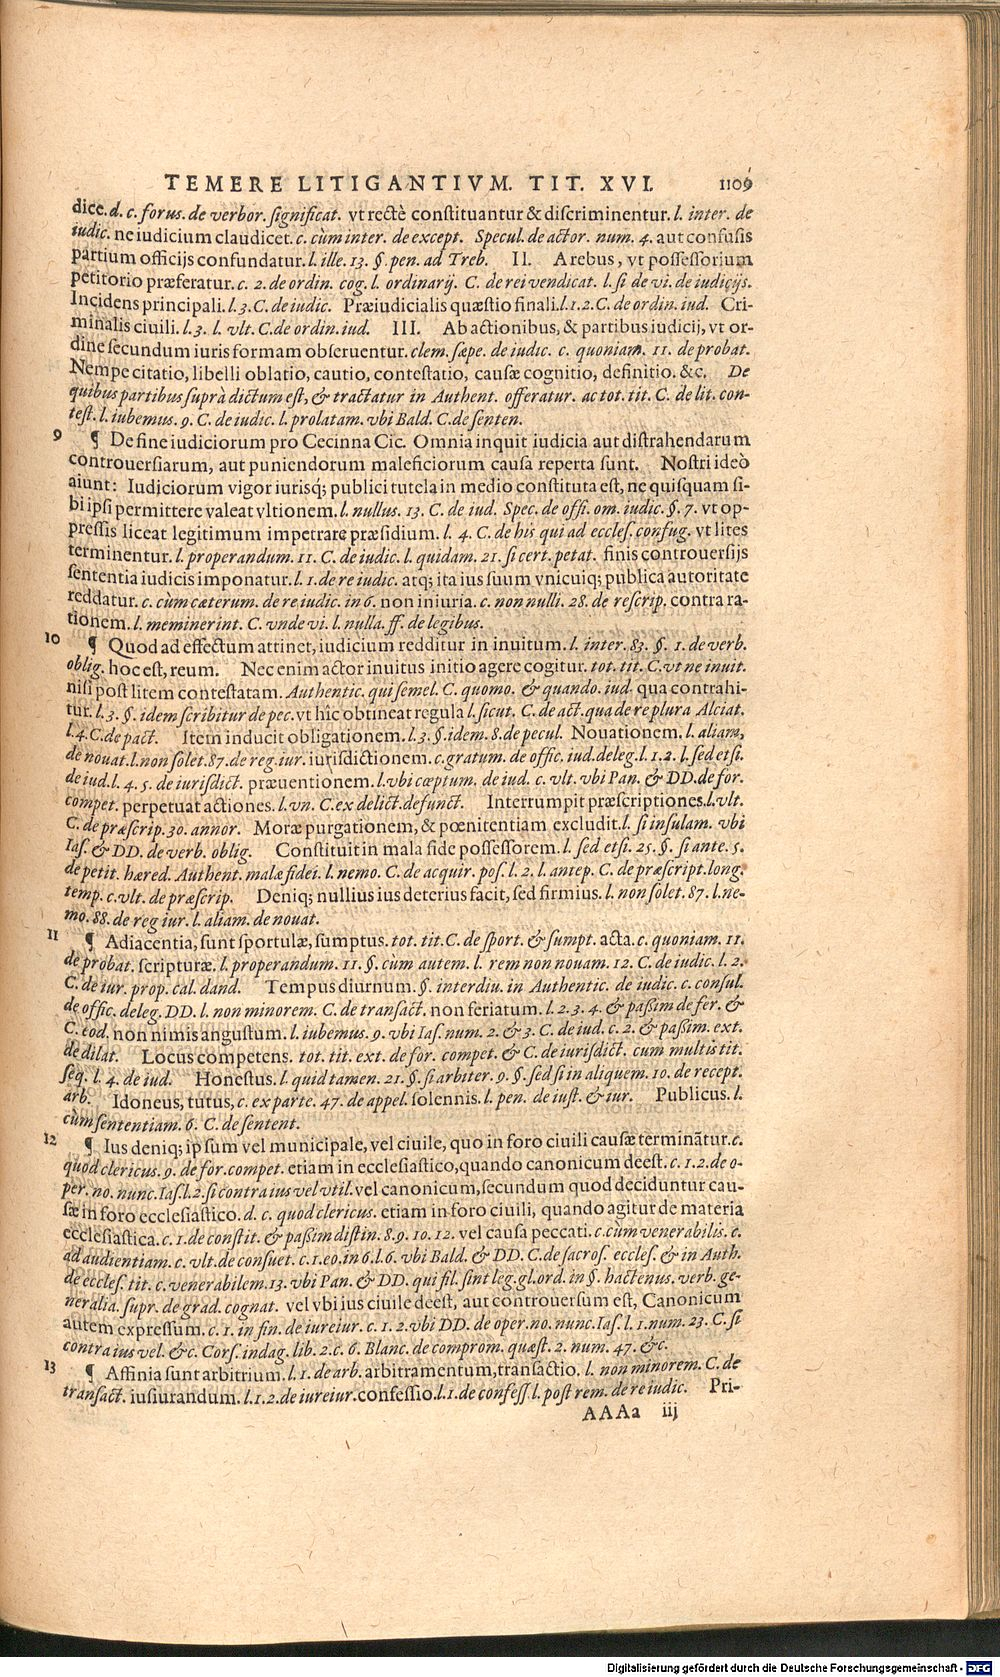 TEMERE LITIGANTIVM. TIT. XVI. 1109
dice. d. c. forus. de verbor. significat. vt rectè constituantur & discriminentur. l. inter. de
iudic. ne iudicium claudicet. c. cùm inter. de except. Specul. de actor. num. 4. aut confusis
partium officijs confundatur. l. ille. 13. §. pen. ad Treb. II. A rebus, vt possessorium
petitorio præferatur. c. 2. de ordin. cog. l. ordinarij. C. de rei vendicat. l. si de vi. de iudicijs.
Incidens principali. l. 3. C. de iudic. Præiudicialis quæstio finali. l. 1. 2. C. de ordin. iud. Cri-
minalis ciuili. l. 3. l. vlt. C. de ordin. iud. III. Ab actionibus, & partibus iudicij, vt or-
dine secundum iuris formam obseruentur. clem. sæpe. de iudic. c. quoniam. 11. de probat.
Nempe citatio, libelli oblatio, cautio, contestatio, causæ cognitio, definitio. &c. De
quibus partibus suprà dictum est, & tractatur in Authent. offeratur. ac tot. tit. C. de lit. con-
test. l. iubemus. 9. C. de iudic. l. prolatam. vbi Bald. C. de senten.
9 ¶ De fine iudiciorum pro Cecinna Cic. Omnia inquit iudicia aut distrahendarum
controuersiarum, aut puniendorum maleficiorum causa reperta sunt. Nostri ideò
aiunt: Iudiciorum vigor iurisq; publici tutela in medio constituta est, ne quisquam si-
bi ipsi permittere valeat vltionem. l. nullus. 13. C. de iud. Spec. de offi. om. iudic. §. 7. vt op-
pressis liceat legitimum impetrare præsidium. l. 4. C. de his qui ad eccles. confug. vt lites
terminentur. l. properandum. 11. C. de iudic. l. quidam. 21. si cert. petat. finis controuersijs
sententia iudicis imponatur. l. 1. de re iudic. atq; ita ius suum vnicuiq; publica autoritate
reddatur. c. cùm cæterum. de re iudic. in 6. non iniuria. c. non nulli. 28. de rescrip. contra ra-
tionem. l. meminerint. C. vnde vi. l. nulla. ff. de legibus.
10 ¶ Quod ad effectum attinet, iudicium redditur in inuitum. l. inter. 83. §. 1. de verb.
oblig. hoc est, reum. Nec enim actor inuitus initio agere cogitur. tot. tit. C. vt ne inuit.
nisi post litem contestatam. Authentic. qui semel. C. quomo. & quando. iud. qua contrahi-
tur. l. 3. §. idem scribitur de pec. vt hîc obtineat regula l. sicut. C. de act. qua de re plura Alciat.
l. 4. C. de pact. Item inducit obligationem. l. 3. §. idem. 8. de pecul. Nouationem. l. aliam,
de nouat. l. non solet. 87. de reg. iur. iurisdictionem. c. gratum. de offic. iud. deleg. l. 1. 2. l. sed etsi.
de iud. l. 4. 5. de iurisdict. præuentionem. l. vbi cæptum. de iud. c. vlt. vbi Pan. & DD. de for.
compet. perpetuat actiones. l. vn. C. ex delict. defunct. Interrumpit præscriptiones. l. vlt.
C. de præscrip. 30. annor. Moræ purgationem, & pœnitentiam excludit. l. si insulam. vbi
Ias. & DD. de verb. oblig. Constituit in mala fide possessorem. l. sed etsi. 25. §. si ante. 5.
de petit. hæred. Authent. malæ fidei. l. nemo. C. de acquir. pos. l. 2. l. antep. C. de præscript. long.
temp. c. vlt. de præscrip. Deniq; nullius ius deterius facit, sed firmius. l. non solet. 87. l. ne-
mo. 88. de reg iur. l. aliam. de nouat.
11 ¶ Adiacentia, sunt sportulæ, sumptus. tot. tit. C. de sport. & sumpt. acta. c. quoniam. 11.
de probat. scripturæ. l. properandum. 11. §. cùm autem. l. rem non nouam. 12. C. de iudic. l. 2.
C. de iur. prop. cal. dand. Tempus diurnum. §. interdiu. in Authentic. de iudic. c. consul.
de offic. deleg. DD. l. non minorem. C. de transact. non feriatum. l. 2. 3. 4. & passim de fer. &
C. eod. non nimis angustum. l. iubemus. 9. vbi Ias. num. 2. & 3. C. de iud. c. 2. & passim. ext.
de dilat. Locus competens. tot. tit. ext. de for. compet. & C. de iurisdict. cum multis tit.
seq. l. 4. de iud. Honestus. l. quid tamen. 21. §. si arbiter. 9. §. sed si in aliquem. 10. de recept.
arb. Idoneus, tutus, c. ex parte. 47. de appel. solennis. l. pen. de iust. & iur. Publicus. l.
cùm sententiam. 6. C. de sentent.
12 ¶ Ius deniq; ipsum vel municipale, vel ciuile, quo in foro ciuili causæ terminãtur. c.
quod clericus. 9. de for. compet. etiam in ecclesiastico, quando canonicum deest. c. 1. 2. de o-
per. no. nunc. Ias. l. 2. si contra ius vel vtil. vel canonicum, secundum quod deciduntur cau-
sæ in foro ecclesiastico. d. c. quod clericus. etiam in foro ciuili, quando agitur de materia
ecclesiastica. c. 1. de constit. & passim distin. 8. 9. 10. 12. vel causa peccati. c. cùm venerabilis. c.
ad audientiam. c. vlt. de consuet. c. 1. eo. in 6. l. 6. vbi Bald. & DD. C. de sacros. eccles. & in Auth.
de eccles. tit. c. venerabilem. 13. vbi Pan. & DD. qui fil. sint leg. gl. ord. in §. hactenus. verb. ge-
neralia. supr. de grad. cognat. vel vbi ius ciuile deest, aut controuersum est, Canonicum
autem expressum. c. 1. in fin. de iureiur. c. 1. 2. vbi DD. de oper. no. nunc. Ias. l. 1. num. 23. C. si
contra ius vel. &c. Cors. indag. lib. 2. c. 6. Blanc. de comprom. quæst. 2. num. 47. &c.
13 ¶ Affinia sunt arbitrium. l. 1. de arb. arbitramentum, transactio. l. non minorem. C. de
transact. iusiurandum. l. 1. 2. de iureiur. confessio. l. 1. de confess. l. post rem. de re iudic. Pri-
AAAa iij
Digitalisierung gefördert durch die Deutsche Forschungsgemeinschaft - DFG